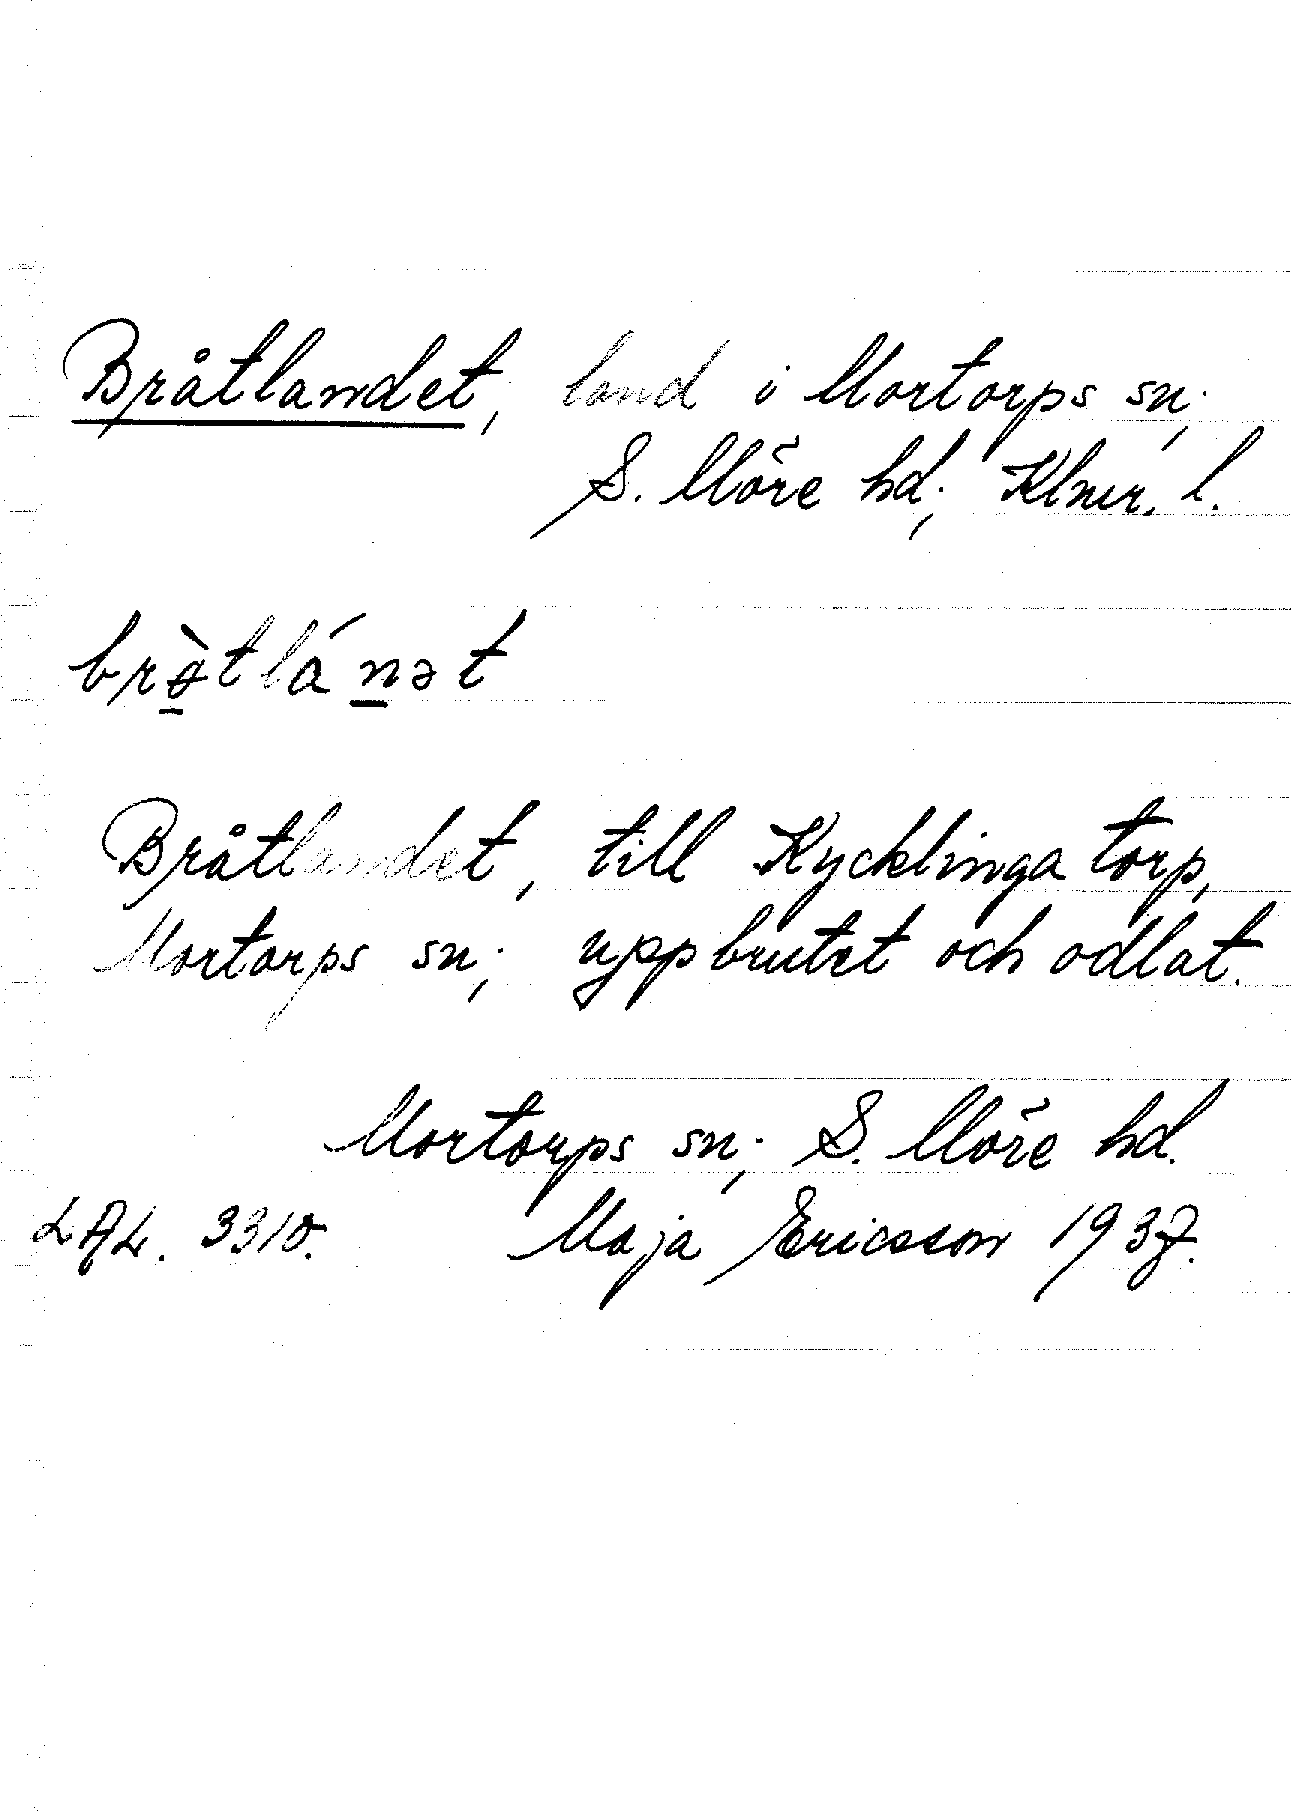 Bråtlandet, land i Mortorps sn.,
S. Möre hd., Klmr. l.
brɔ̠̀tlán̠ət
Bråtlandet, till Kycklingatorp,
Mortorps sn., uppbrutet och odlat.
Mortorps sn., S. Möre hd.
LAL. 3310. Maja Ericsson 1937.